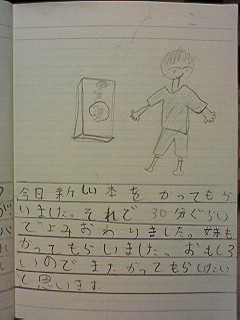 今日新しい本をかってもら
いました。それで30分ぐらい
でよみおわりました。妹も
かってもらいました。おもしろ
いのでまたかってもらいたい
と思います